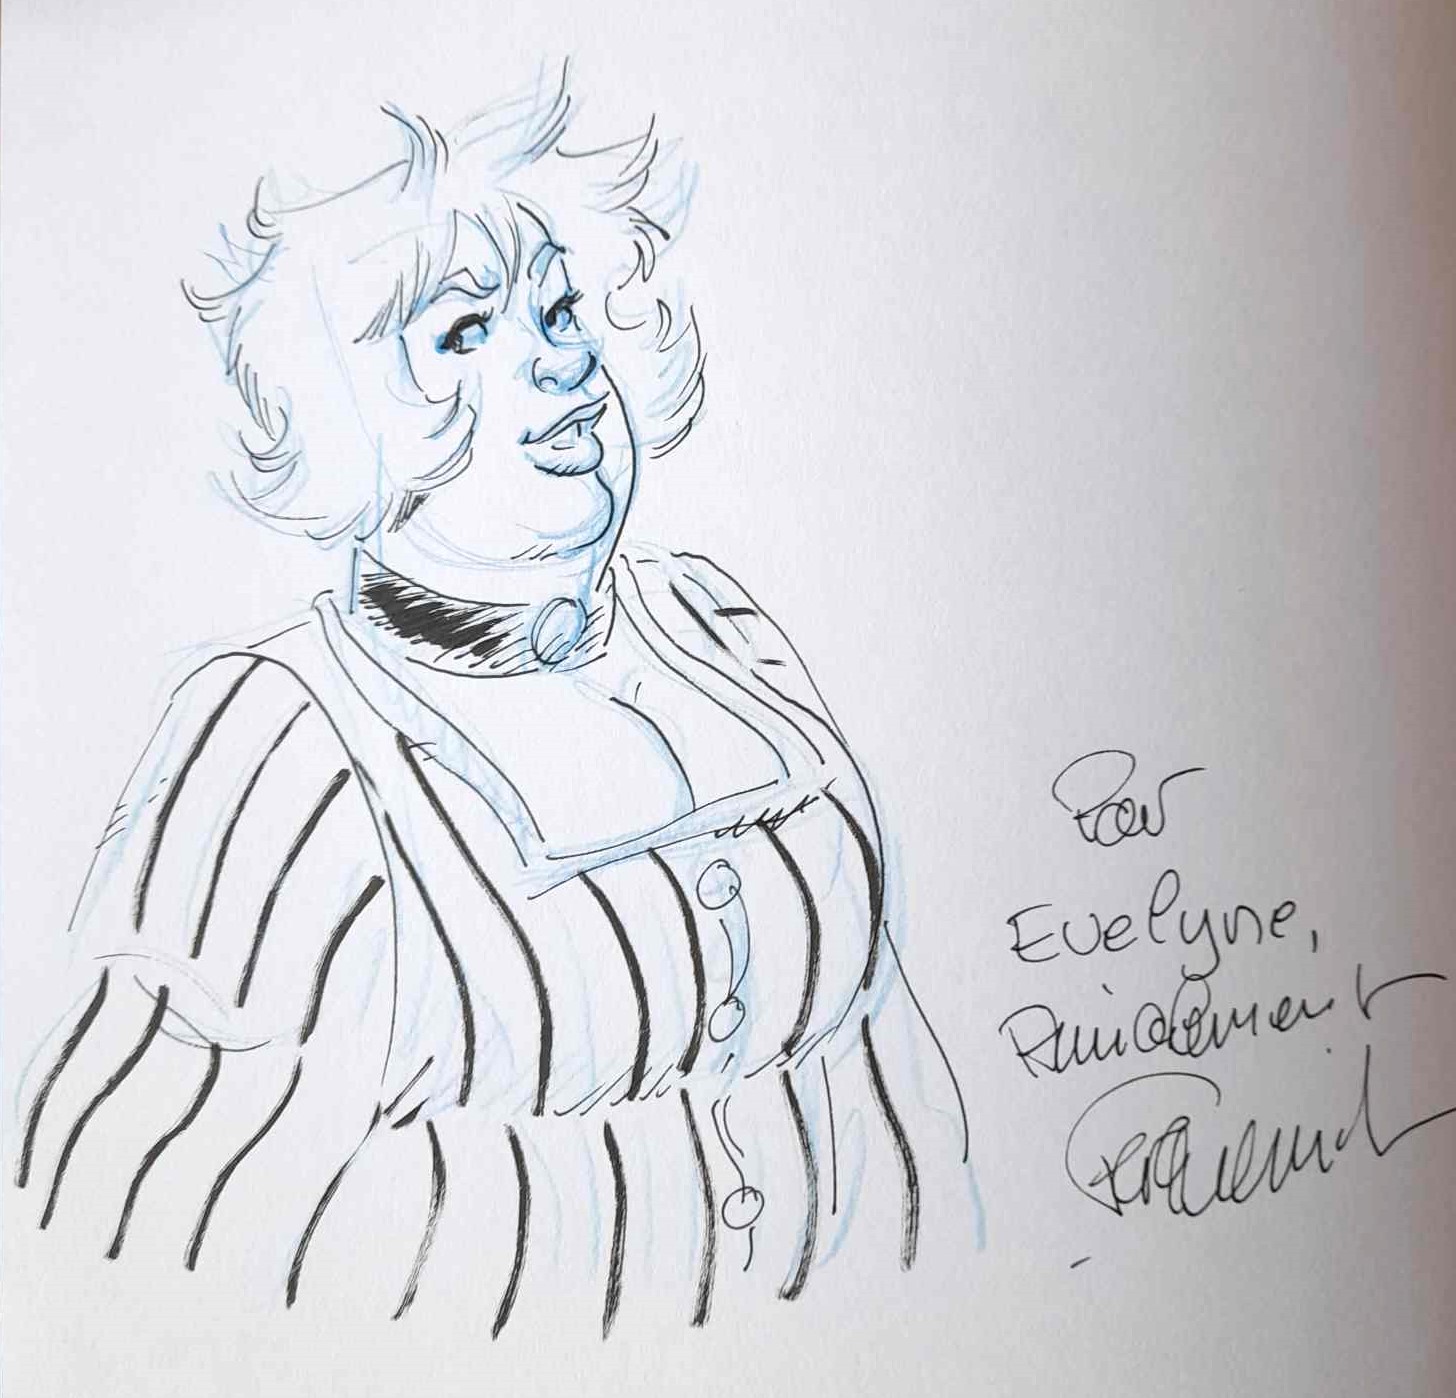 Pour
Evelyne,
Amicalement